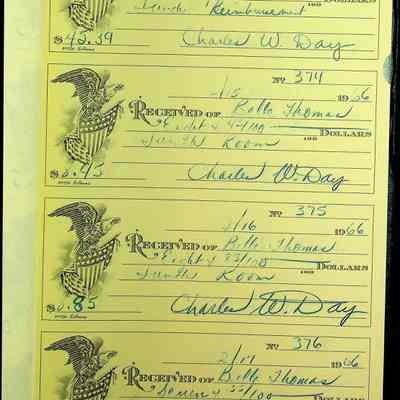 DOLLARS
Reimbursement 100
$43.39 Charles W. Day
No 374
2/15 1966
RECEIVED OF Bille Thomas
Eight & 45/100 DOLLARS
Room
$8.45 Charles W. Day
No 375
2/16 1966
RECEIVED OF Bille Thomas
Eight & 85/100 DOLLARS
Room
$8.85 Charles W. Day
No 376
2/17 1966
RECEIVED OF Bille Thomas
Seven & /100